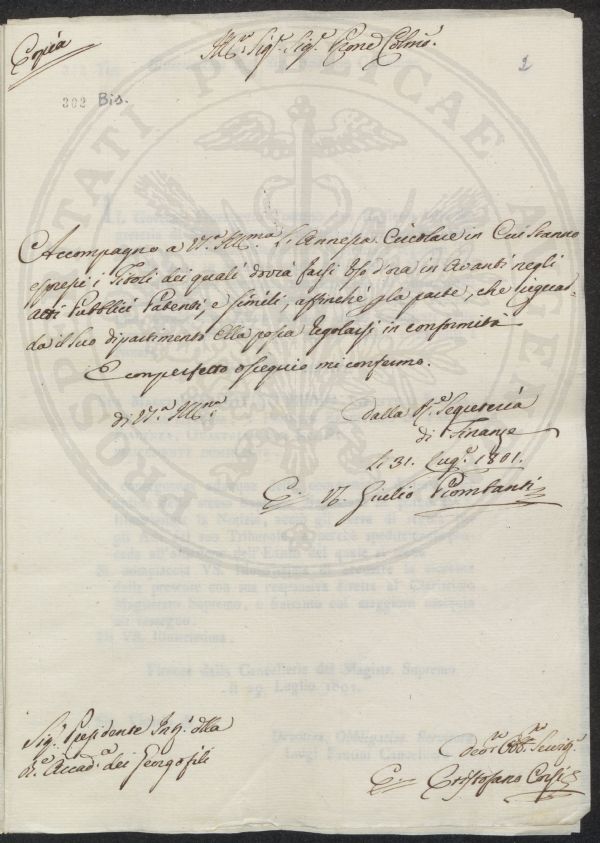 Copia
Ill.mo Sig.r Sig.r Prone Colmo.
2
302 Bis.
PROSPERITATI PUBLICAE AUGENDAE
Accompagno a VS. Ill.ma L'Annessa Circolare in Cui Stanno
espressi i Titoli dei quali dovrà farsi Uso d'ora in Avanti negli
Atti Pubblici Patenti, e simili, affinché p la parte, che riguar-
da il Suo dipartimento Ella possa Regolarsi in conformità
E con perfetto ossequio mi confermo.
di VS. Ill.ma
Dalla R. Segreteria
di Finanze
Li 31. Lug.o 1801.
Giulio Piombanti
Sig.r Presidente Int.o della
R. Accad.a dei Georgofili
dev.mo Obb.mo Servig.
Cristofano Corsi
Firenze dalla Cancelleria del Magistr. Supremo
li 29. Luglio 1801.